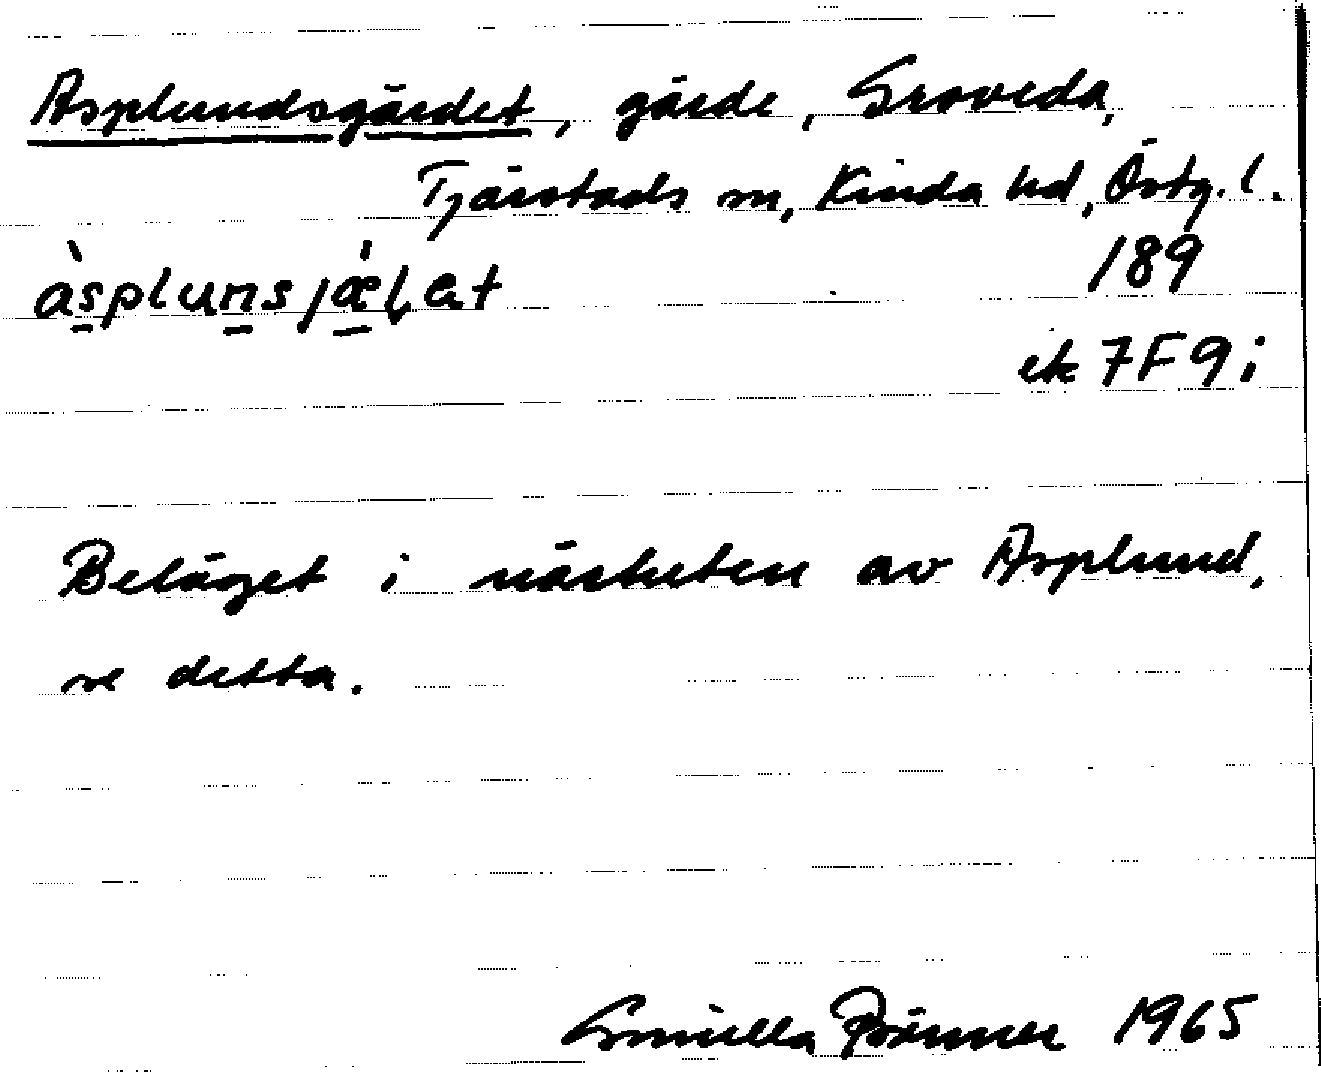 Asplundsgärdet, gärde, Groveda,
Tjärstads sn, Kinda hd, Östg. l.
àsplunsjæ̀ɭət
189
ek 7F9i
Beläget i närheten av Asplund,
se detta.
Gunilla 1965